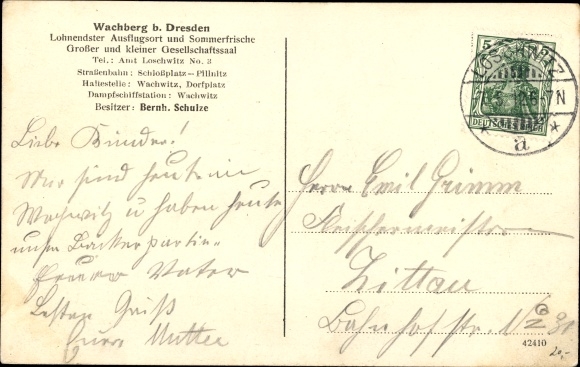 Wachberg b. Dresden
Lohnendster Ausflugsort und Sommerfrische
Großer und kleiner Gesellschaftssaal
Tel.: Amt Loschwitz No. 3
Straßenbahn: Schloßplatz—Pillnitz
Haltestelle: Wachwitz, Dorfplatz
Dampfschiffstation: Wachwitz
Besitzer: Bernh. Schulze
Liebe Kinder!
Wir sind heute in
Wachwitz u haben heute
unsre
Vater
Besten Gruß
Eure Mutter
5
LOSCHWITZ
7N
DEUTSCHES REICH
* a *
Herrn Emil Grimm
Fleischermeister
Zittau
Bahnhofstr.
42410
20,-